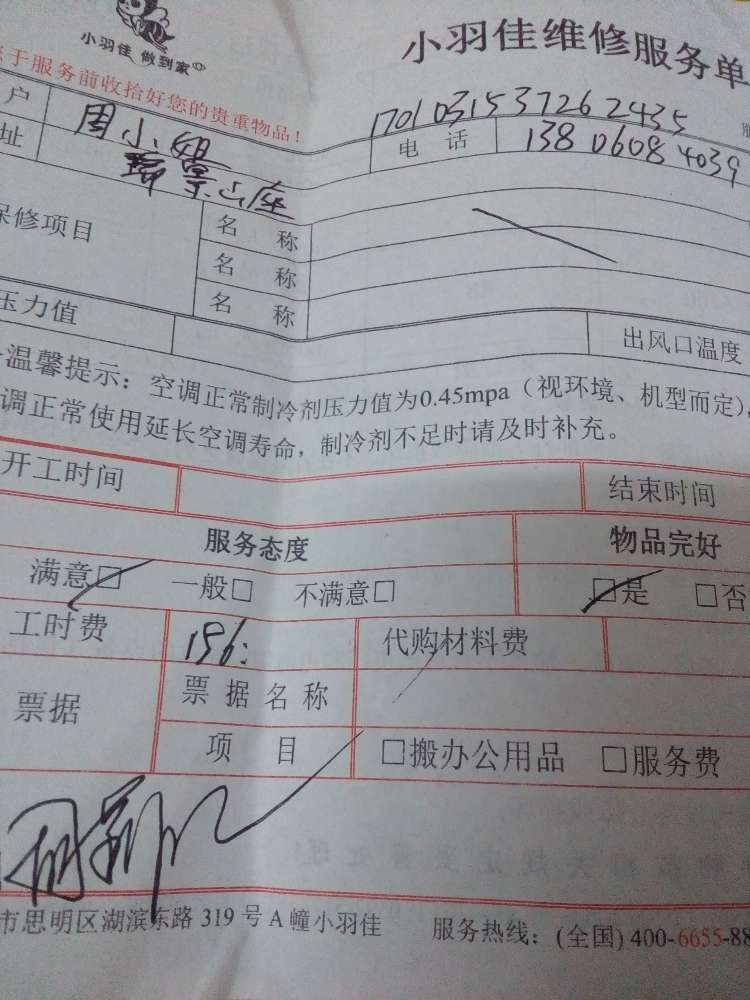 小羽佳 做到家
小羽佳维修服务单
于服务前收拾好您的贵重物品！
1701031537262435
户 周小姐
电话 13806084039
址
保修项目 名称
名称
名称
压力值 出风口温度
温馨提示：空调正常制冷剂压力值为0.45mpa（视环境、机型而定），
调正常使用延长空调寿命，制冷剂不足时请及时补充。
开工时间 结束时间
服务态度 物品完好
满意□ 一般□ 不满意□ □是 □否
工时费 196: 代购材料费
票据 票据名称
项目 □搬办公用品 □服务费
市思明区湖滨东路 319 号 A 幢小羽佳 服务热线：(全国) 400-6655-88